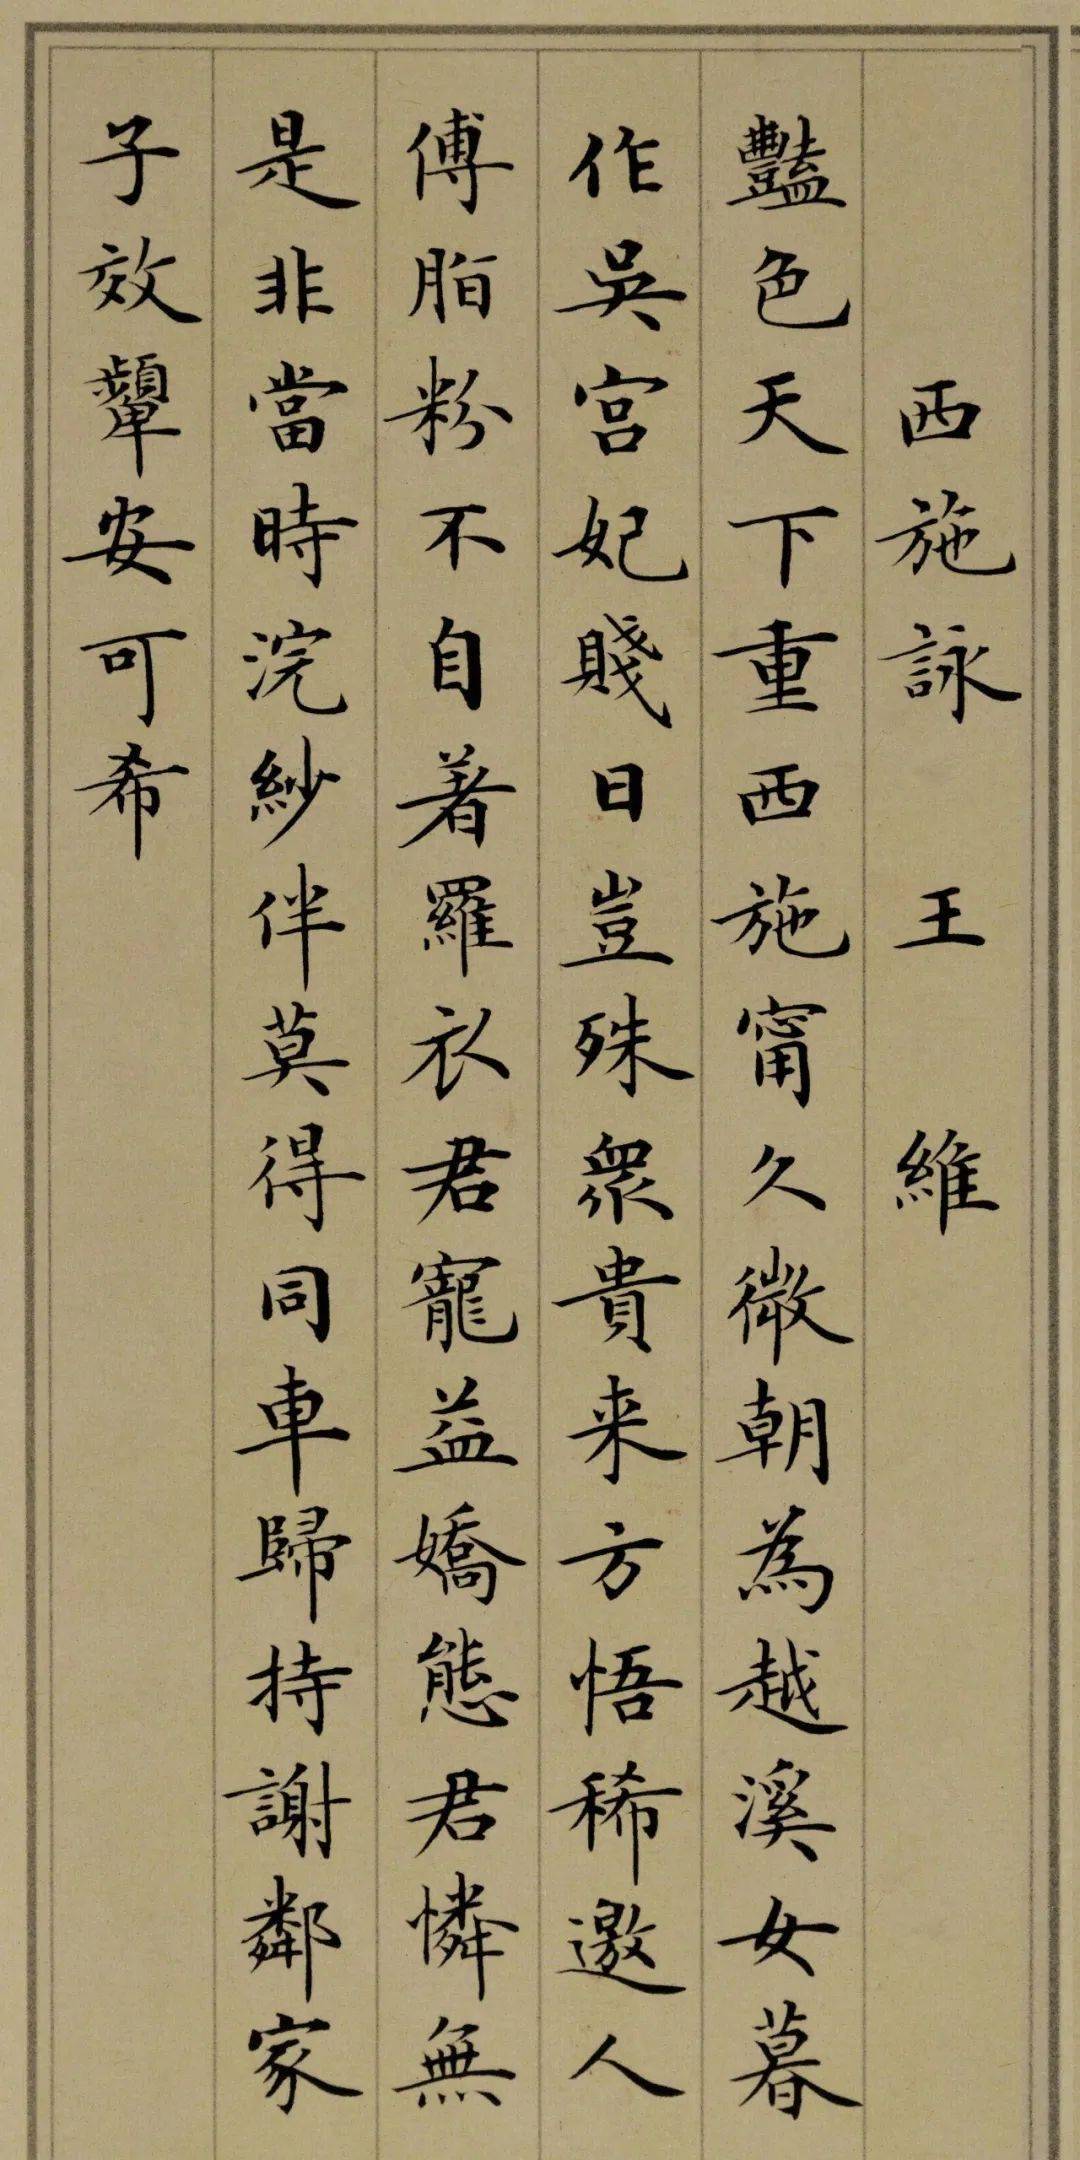 西施詠 王 維
豔色天下重西施甯久微朝為越溪女暮
作吳宮妃賤日豈殊衆貴来方悟稀邀人
傅脂粉不自著羅衣君寵益嬌態君憐無
是非當時浣紗伴莫得同車歸持謝鄰家
子效顰安可希